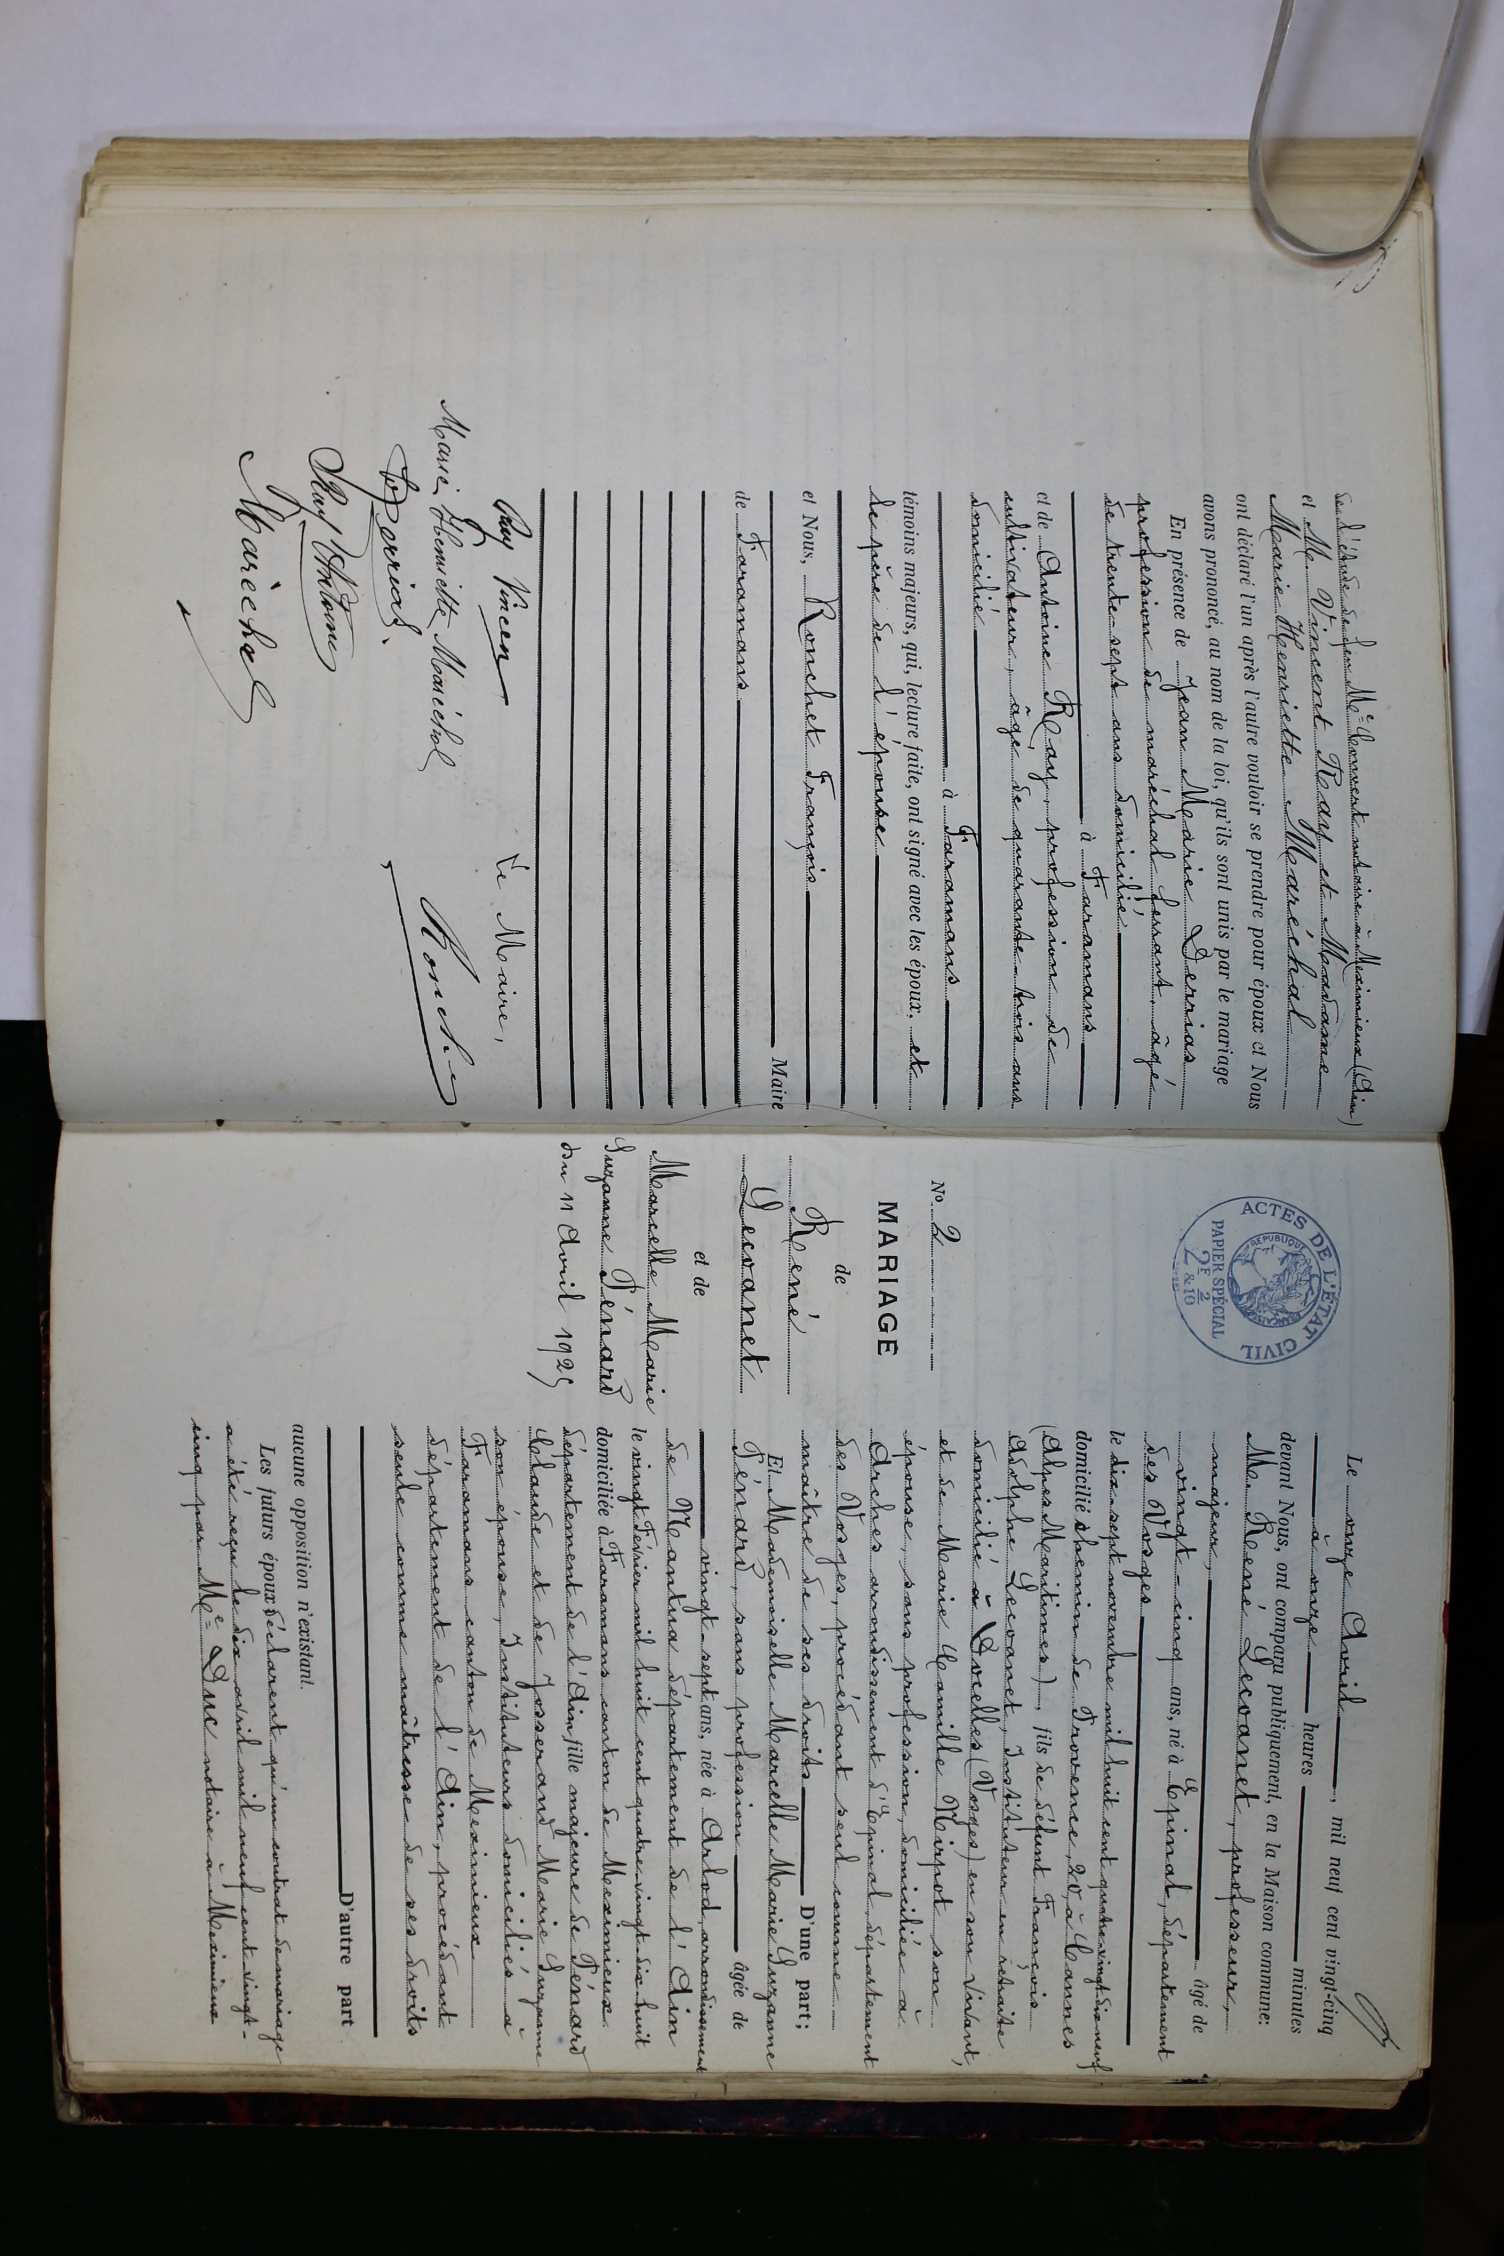 de l'étude de feu Me Convert notaire à Meximieux (Ain)
et M. Vincent Ray et Madame
Marie Henriette Maréchal
ont déclaré l'un après l'autre vouloir se prendre pour époux et Nous
avons prononcé, au nom de la loi, qu'ils sont unis par le mariage
En présence de Jean Marie Derrias
profession de maréchal ferrant, âgé
de trente-sept ans domicilié
à Faramans
et de Antoine Ray, profession de
cultivateur, âgé de quarante-trois ans
domicilié
à Faramans
témoins majeurs, qui, lecture faite, ont signé avec les époux, et
le père de l'épouse
et Nous, Ronchet François
Maire
de Faramans
Ray Vincent
Le Maire,
Marie Henriette Maréchal
Derrias
Ray Antoine
Maréchal
ACTES DE L'ÉTAT CIVIL
RÉPUBLIQUE FRANÇAISE
PAPIER SPÉCIAL
2F 2/10
No 2
MARIAGE
de
René
Lecoanet
et de
Marcelle Marie
Suzanne Pénard
du 11 Avril 1925
Le onze Avril, mil neuf cent vingt-cinq
à onze heures minutes
devant Nous, ont comparu publiquement, en la Maison commune:
M. René Lecoanet, professeur,
majeur, âgé de
vingt-cinq ans, né à Epinal, département
des Vosges
le dix-sept novembre mil huit cent quatre vingt dix neuf
domicilié chemin de Provence, 20, à Cannes
(Alpes Maritimes), fils de défunt François
Adolphe Lecoanet, Instituteur en retraite
domicilié à Docelles (Vosges) en son vivant,
et de Marie Camille Mirpot son
épouse, sans profession, domiciliée à
Arches arrondissement d'Epinal, département
des Vosges, procédant seul comme
maître de ses droits D'une part;
Et Mademoiselle Marcelle Marie Suzanne
Pénard, sans profession âgée de
vingt-sept ans, née à Arlod, arrondissement
de Nantua département de l'Ain
le vingt Février mil huit cent quatre-vingt-dix-huit
domiciliée à Faramans canton de Meximieux
département de l'Ain, fille majeure de Pénard
Claude et de Josserand Marie Suzanne
son épouse, Instituteurs domiciliés à
Faramans canton de Meximieux
département de l'Ain, procédant
seule comme maîtresse de ses droits
D'autre part
aucune opposition n'existant.
Les futurs époux déclarent qu'un contrat de mariage
a été reçu le dix avril mil neuf cent vingt-
cinq par Me Duc notaire à Meximieux